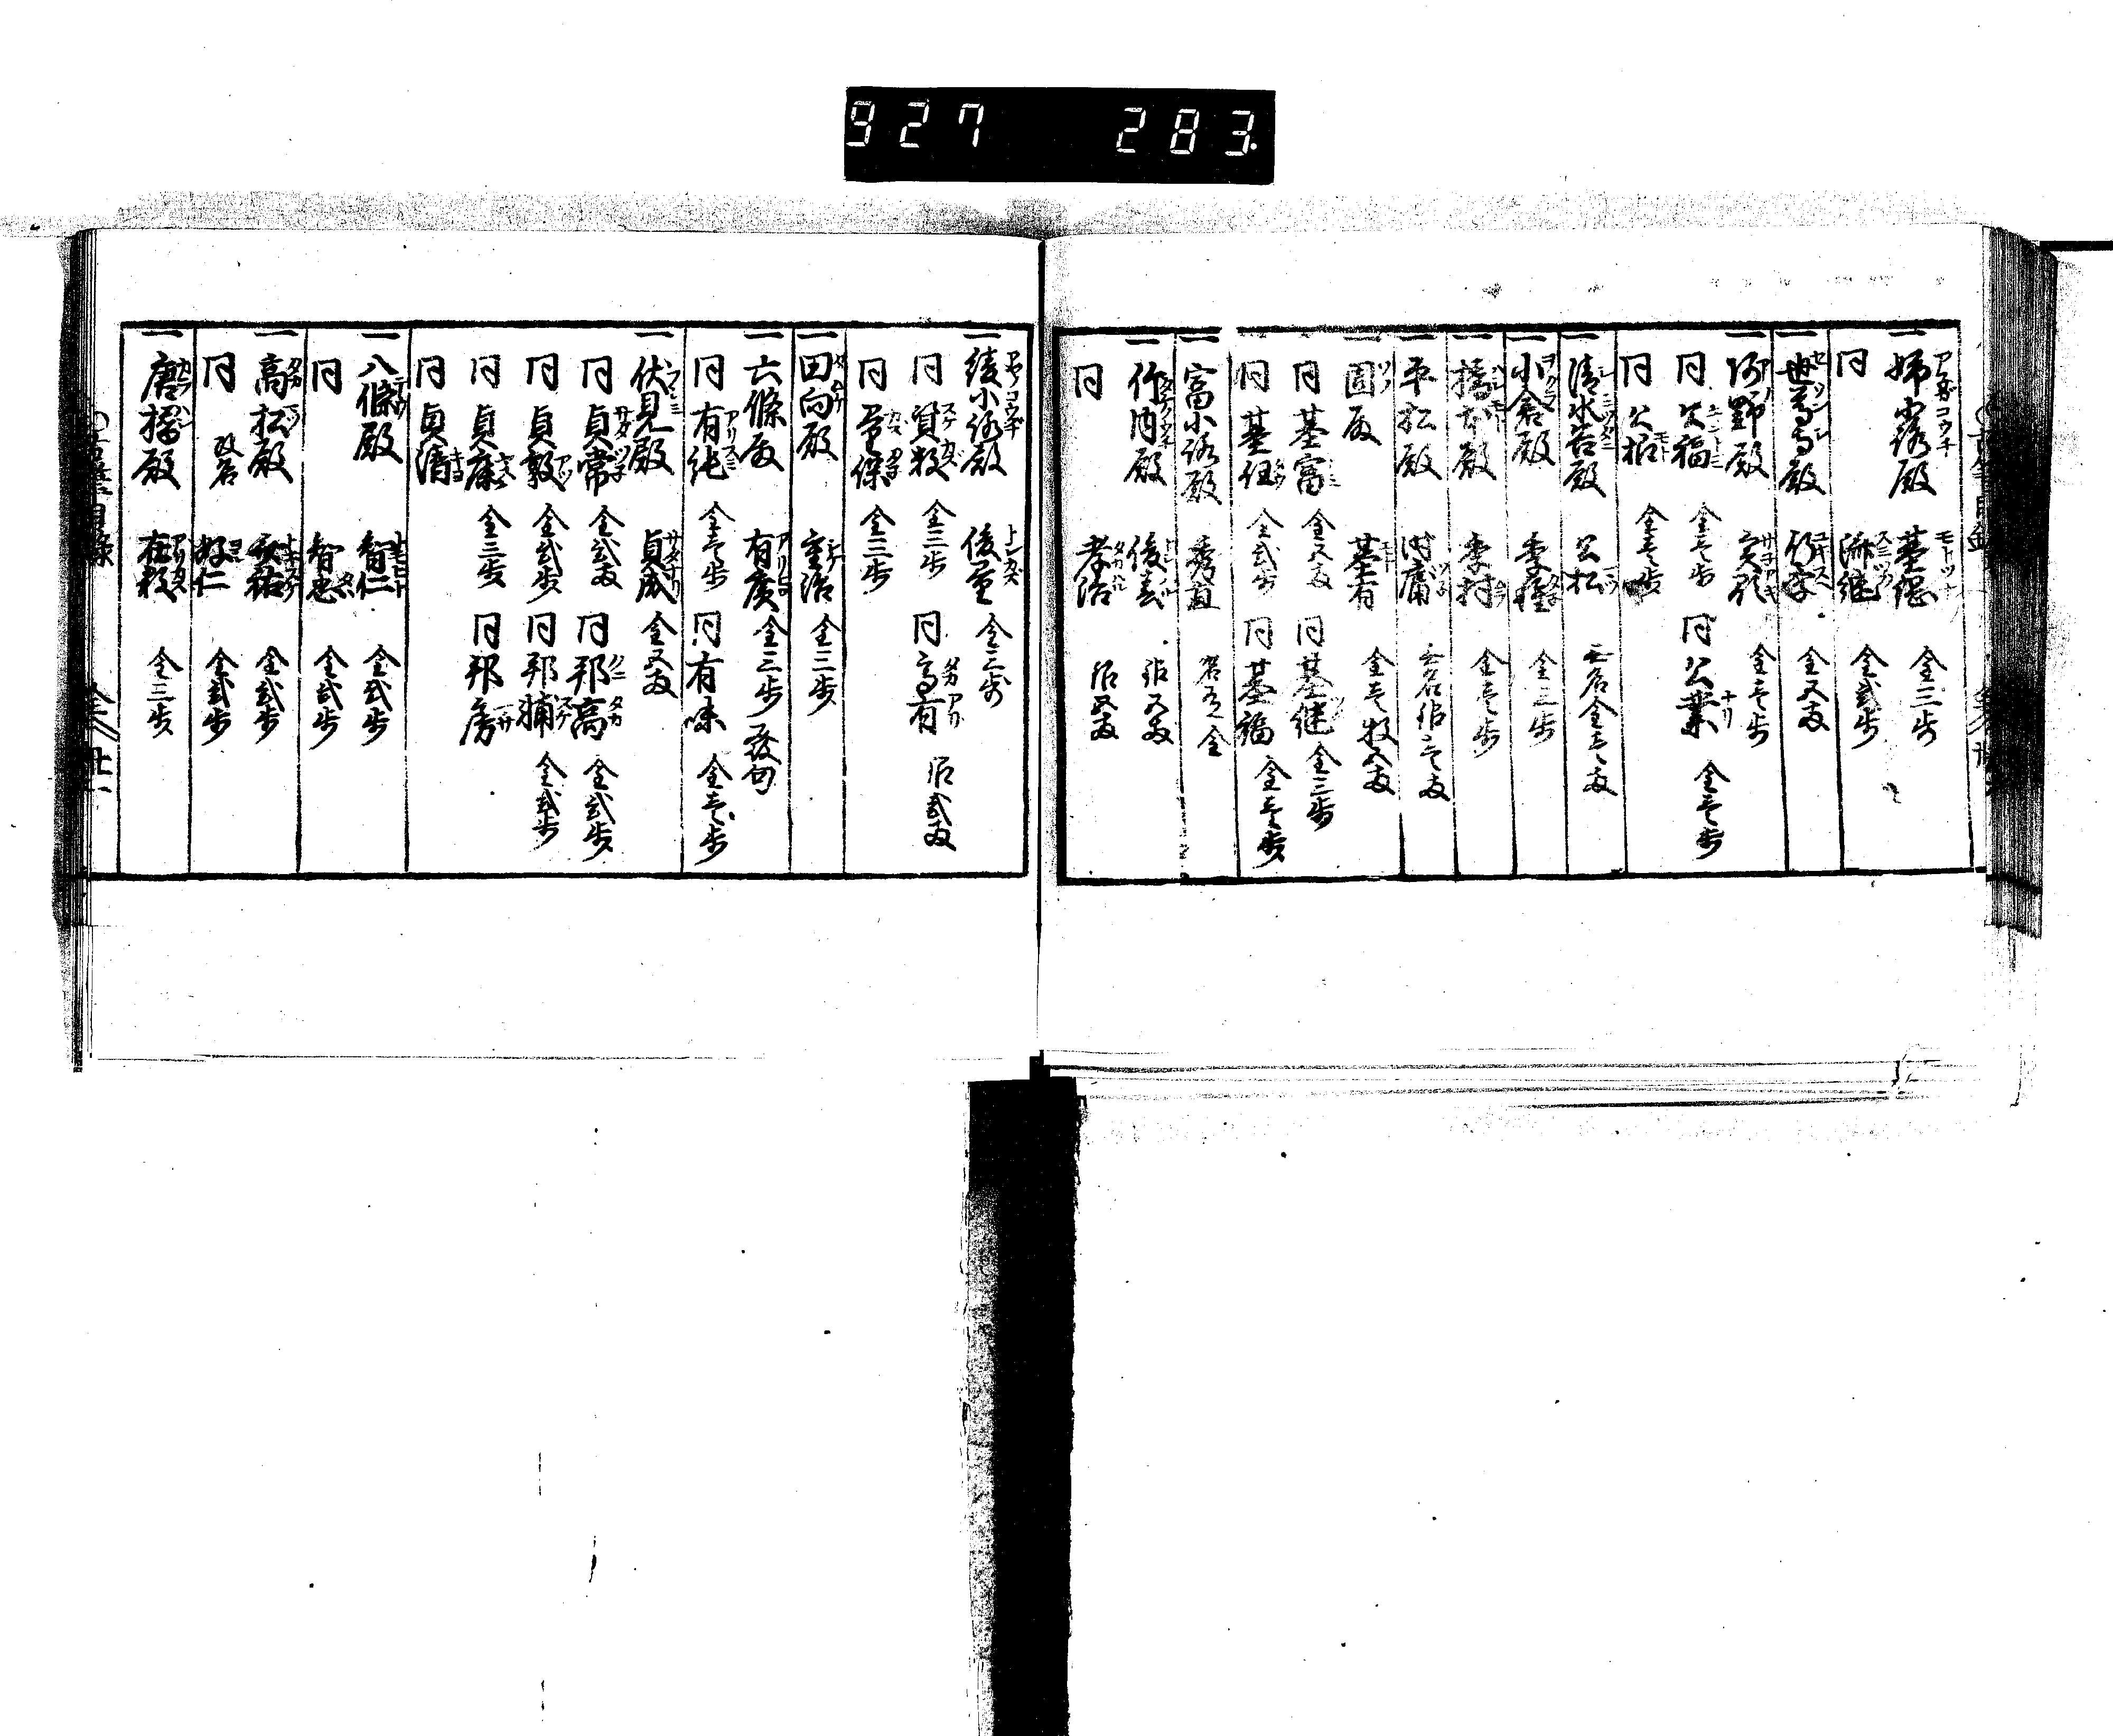 927 283.
一姉小路殿 基綱 金三歩
同 済継 金弐歩
一世尊寺殿 行季 金五両
一河野殿 実顕 金壱歩
同 公福 金壱歩 同 公業 金壱歩
同 公根 金壱歩
一清水谷殿 公松 無名金壱両
一小倉殿 季種 金三歩
一橋本殿 季村 金壱歩
一平松殿 時庸 無名銀壱両
一園殿 基有 金壱枚五両
同 基富 金五両 同 基継 金三歩
同 基任 金弐歩 同 基福 金壱歩
一富小路殿 秀直
一竹内殿 俊孝 銀五両
同 孝治 銀五両
一綾小路殿 俊量 金三歩
同 資数 金三歩 同 高有 銀弐両
同 量保 金三歩
一田向殿 重治 金三歩
一六條殿 有廣 金三歩 発句
同 有純 金壱歩 同 有味 金壱歩
一伏見殿 貞成 金五両
同 貞常 金弐両 同 邦高 金弐歩
同 貞敦 金弐歩 同 邦輔 金弐歩
同 貞康 金三歩 同 邦房
同 貞清
一八條殿 智仁 金弐歩
同 智忠 金弐歩
一高松殿 金弐歩
同 改名 好仁 金弐歩
一唐橋殿 在数 金三歩